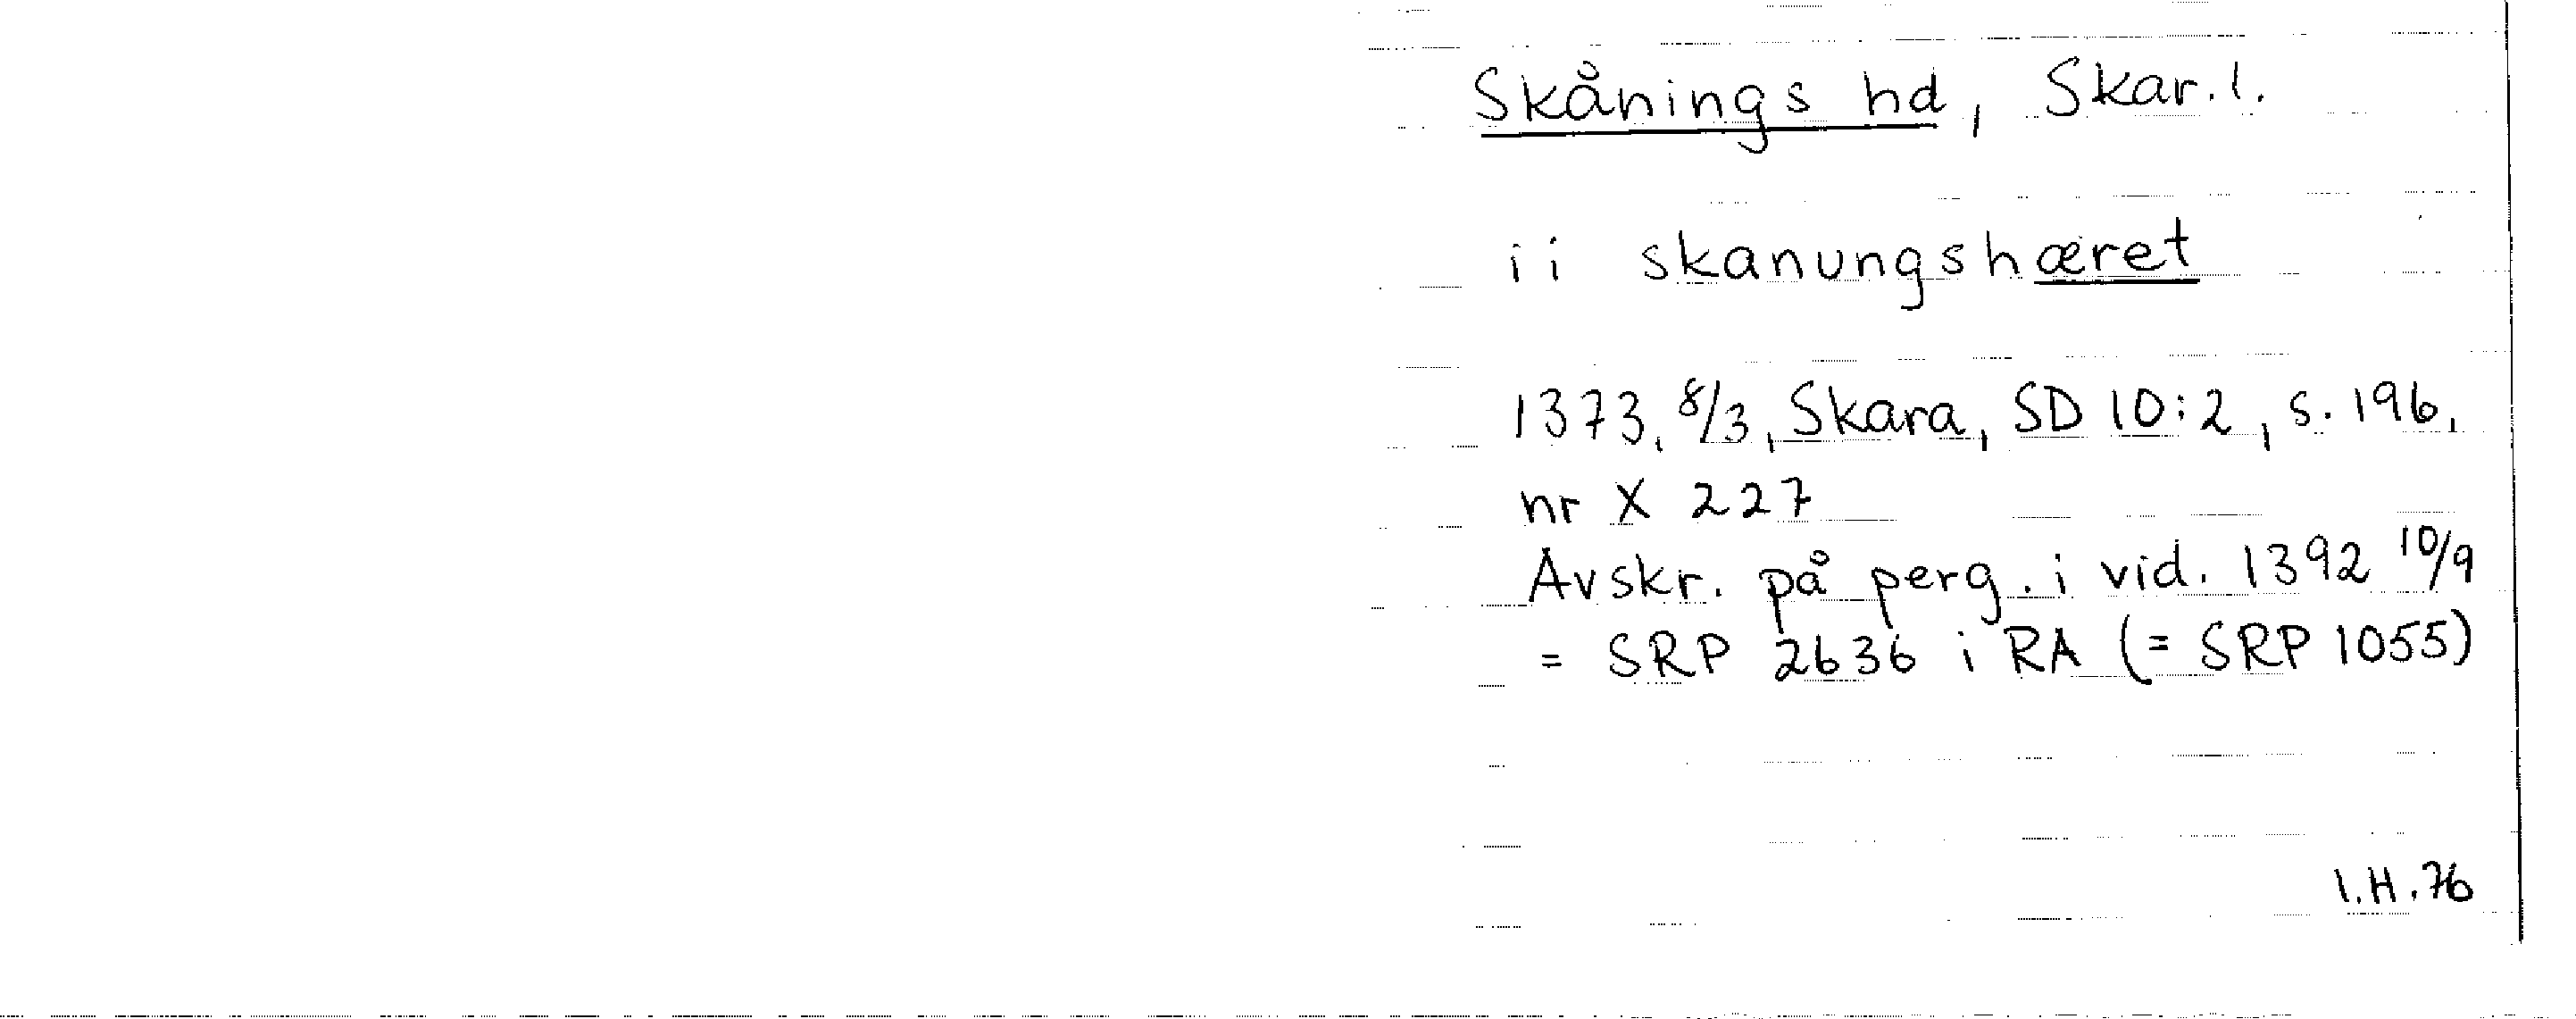 Skånings hd, Skar. l.
i i skanungshæret
1373, 8/3, Skara, SD 10:2, s. 196,
nr X 227
Avskr. på perg. i vid. 1392 10/9
= SRP 2636 i RA (= SRP 1055)
I.H.76